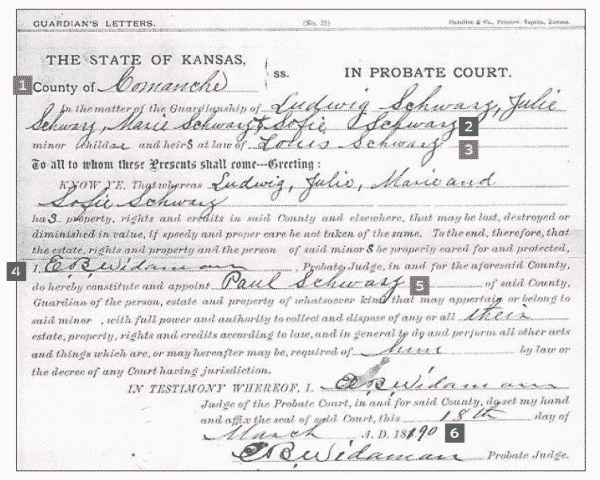 GUARDIAN'S LETTERS. (No. 21) Hamilton & Co., Printers, Topeka, Kansas.
THE STATE OF KANSAS,
1 County of Comanche ss. IN PROBATE COURT.
In the matter of the Guardianship of Ludwig Schwarz, Julie
Schwarz, Marie Schwarz & Sofie Schwarz 2
minor Children and heirs at law of Louis Schwarz 3
To all to whom these Presents shall come—Greeting:
KNOW YE, That whereas Ludwig, Julie, Marie and
Sofie Schwarz
has property, rights and credits in said County and elsewhere, that may be lost, destroyed or
diminished in value, if speedy and proper care be not taken of the same. To the end, therefore, that
the estate, rights and property and the person of said minors be properly cared for and protected,
4 I, E.B. Widaman, Probate Judge, in and for the aforesaid County,
do hereby constitute and appoint Paul Schwarz 5 of said County,
Guardian of the person, estate and property of whatsoever kind that may appertain or belong to
said minor , with full power and authority to collect and dispose of any or all their
estate, property, rights and credits according to law, and in general to do and perform all other acts
and things which are, or may hereafter may be, required of him by law or
the decree of any Court having jurisdiction.
IN TESTIMONY WHEREOF, I, E.B. Widaman
Judge of the Probate Court, in and for said County, do set my hand
and affix the seal of said Court, this 18th day of
March A. D. 1890 6
E.B. Widaman Probate Judge.